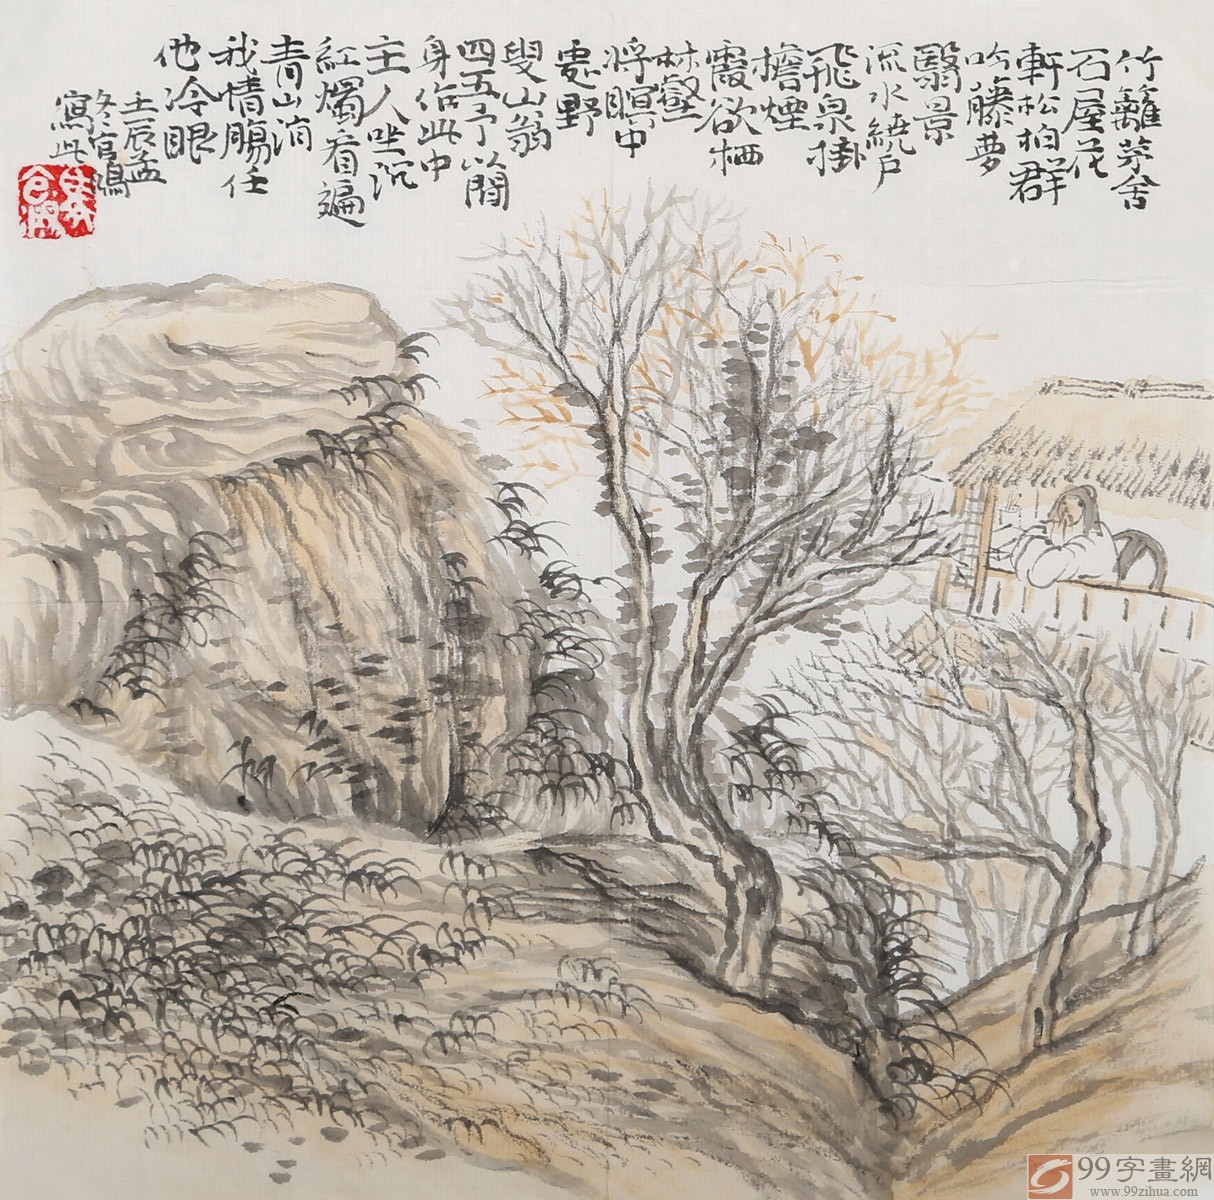 竹籬茅舍
石屋花
軒松柏群
吟藤夢
翳景
流水繞戶
飛泉掛
檐煙
霞欲栖
林壑
將瞑中
野
叟山翁
四五予以閒
身作此中
主人坐沉
紅燭看遍
青山消
我情腸任
他冷眼
壬辰孟
冬官鵬
寫此
99字畫網
www.99zihua.com